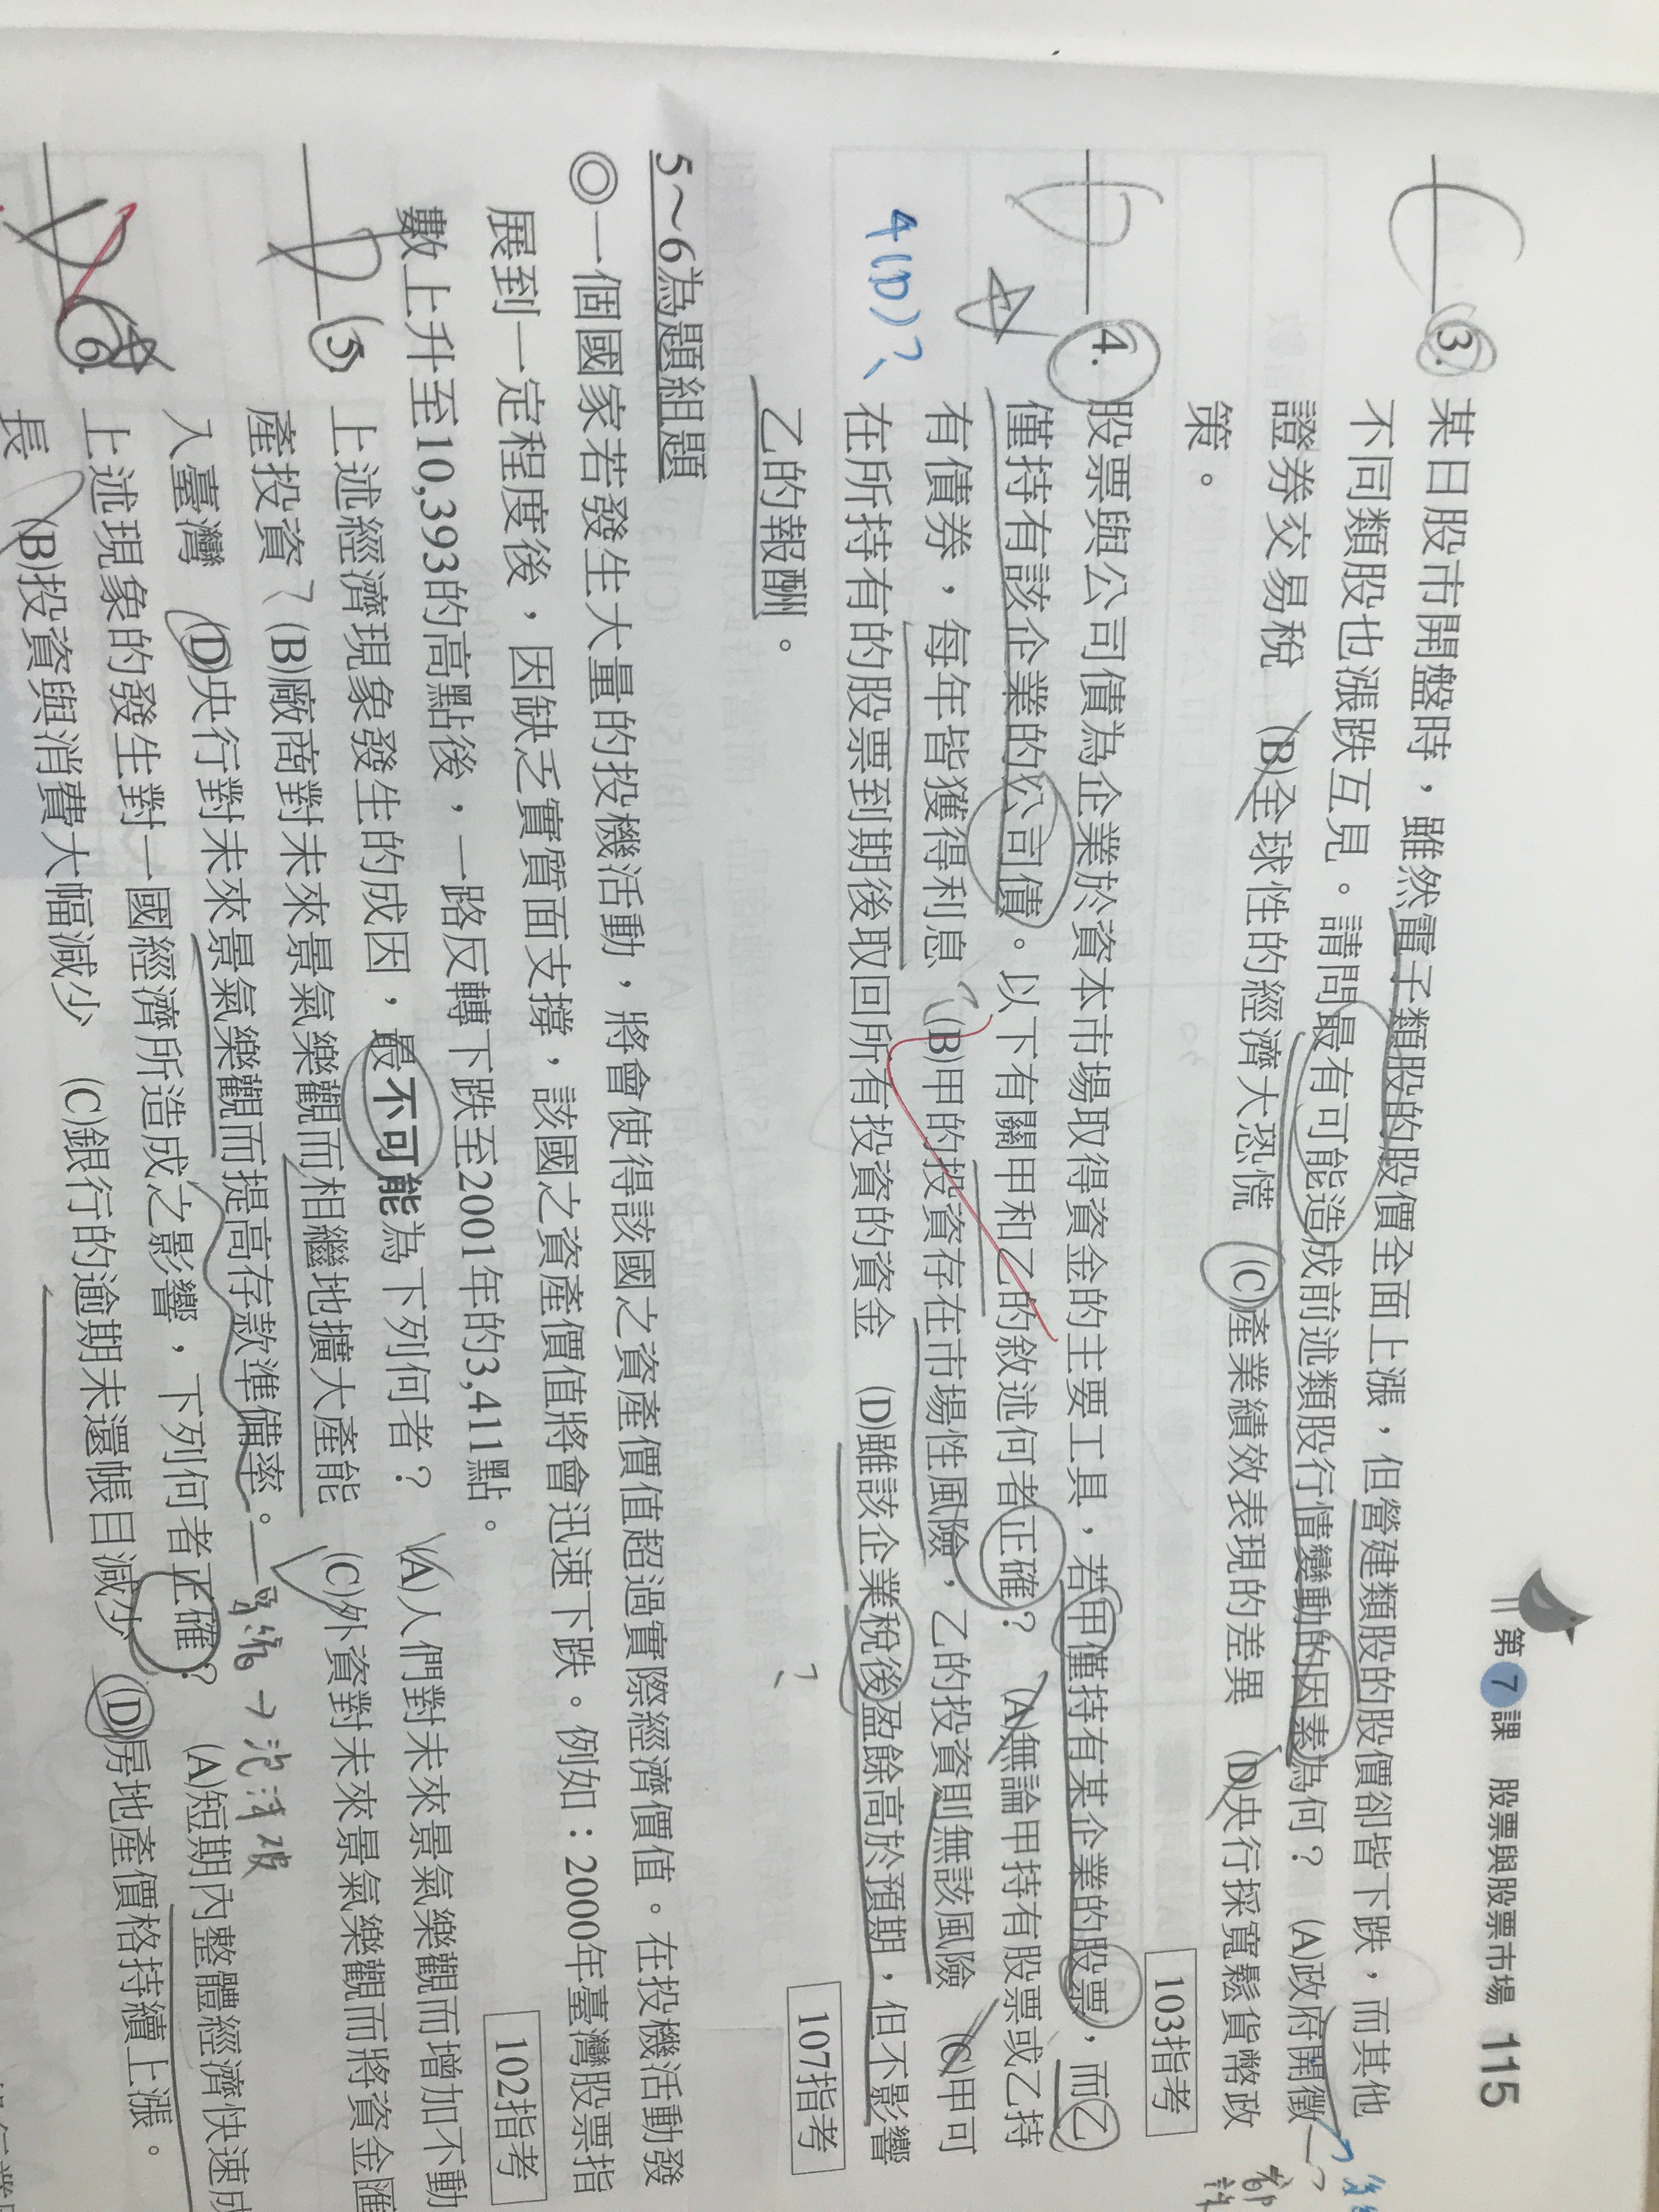 第7課 股票與股票市場 115
3. 某日股市開盤時，雖然電子類股的股價全面上漲，但營建類股的股價卻皆下跌，而其他
不同類股也漲跌互見。請問最有可能造成前述類股行情變動的因素為何？ (A)政府開徵
證券交易稅 (B)全球性的經濟大恐慌 (C)產業績效表現的差異 (D)央行採寬鬆貨幣政
策。
103指考
4. 股票與公司債為企業於資本市場取得資金的主要工具，若甲僅持有某企業的股票，而乙
僅持有該企業的公司債。以下有關甲和乙的敘述何者正確？ (A)無論甲持有股票或乙持
有債券，每年皆獲得利息 (B)甲的投資存在市場性風險，乙的投資則無該風險 (C)甲可
4(D)?
在所持有的股票到期後取回所有投資的資金 (D)雖該企業稅後盈餘高於預期，但不影響
乙的報酬。
107指考
5～6為題組題
◎一個國家若發生大量的投機活動，將會使得該國之資產價值超過實際經濟價值。在投機活動發
展到一定程度後，因缺乏實質面支撐，該國之資產價值將會迅速下跌。例如：2000年臺灣股票指
數上升至10,393的高點後，一路反轉下跌至2001年的3,411點。
102指考
D 5. 上述經濟現象發生的成因，最不可能為下列何者？ (A)人們對未來景氣樂觀而增加不動
產投資 (B)廠商對未來景氣樂觀而相繼地擴大產能 (C)外資對未來景氣樂觀而將資金匯
入臺灣 (D)央行對未來景氣樂觀而提高存款準備率。
→泡沫破
6. 上述現象的發生對一國經濟所造成之影響，下列何者正確？ (A)短期內整體經濟快速成
長 (B)投資與消費大幅減少 (C)銀行的逾期未還帳目減少 (D)房地產價格持續上漲。